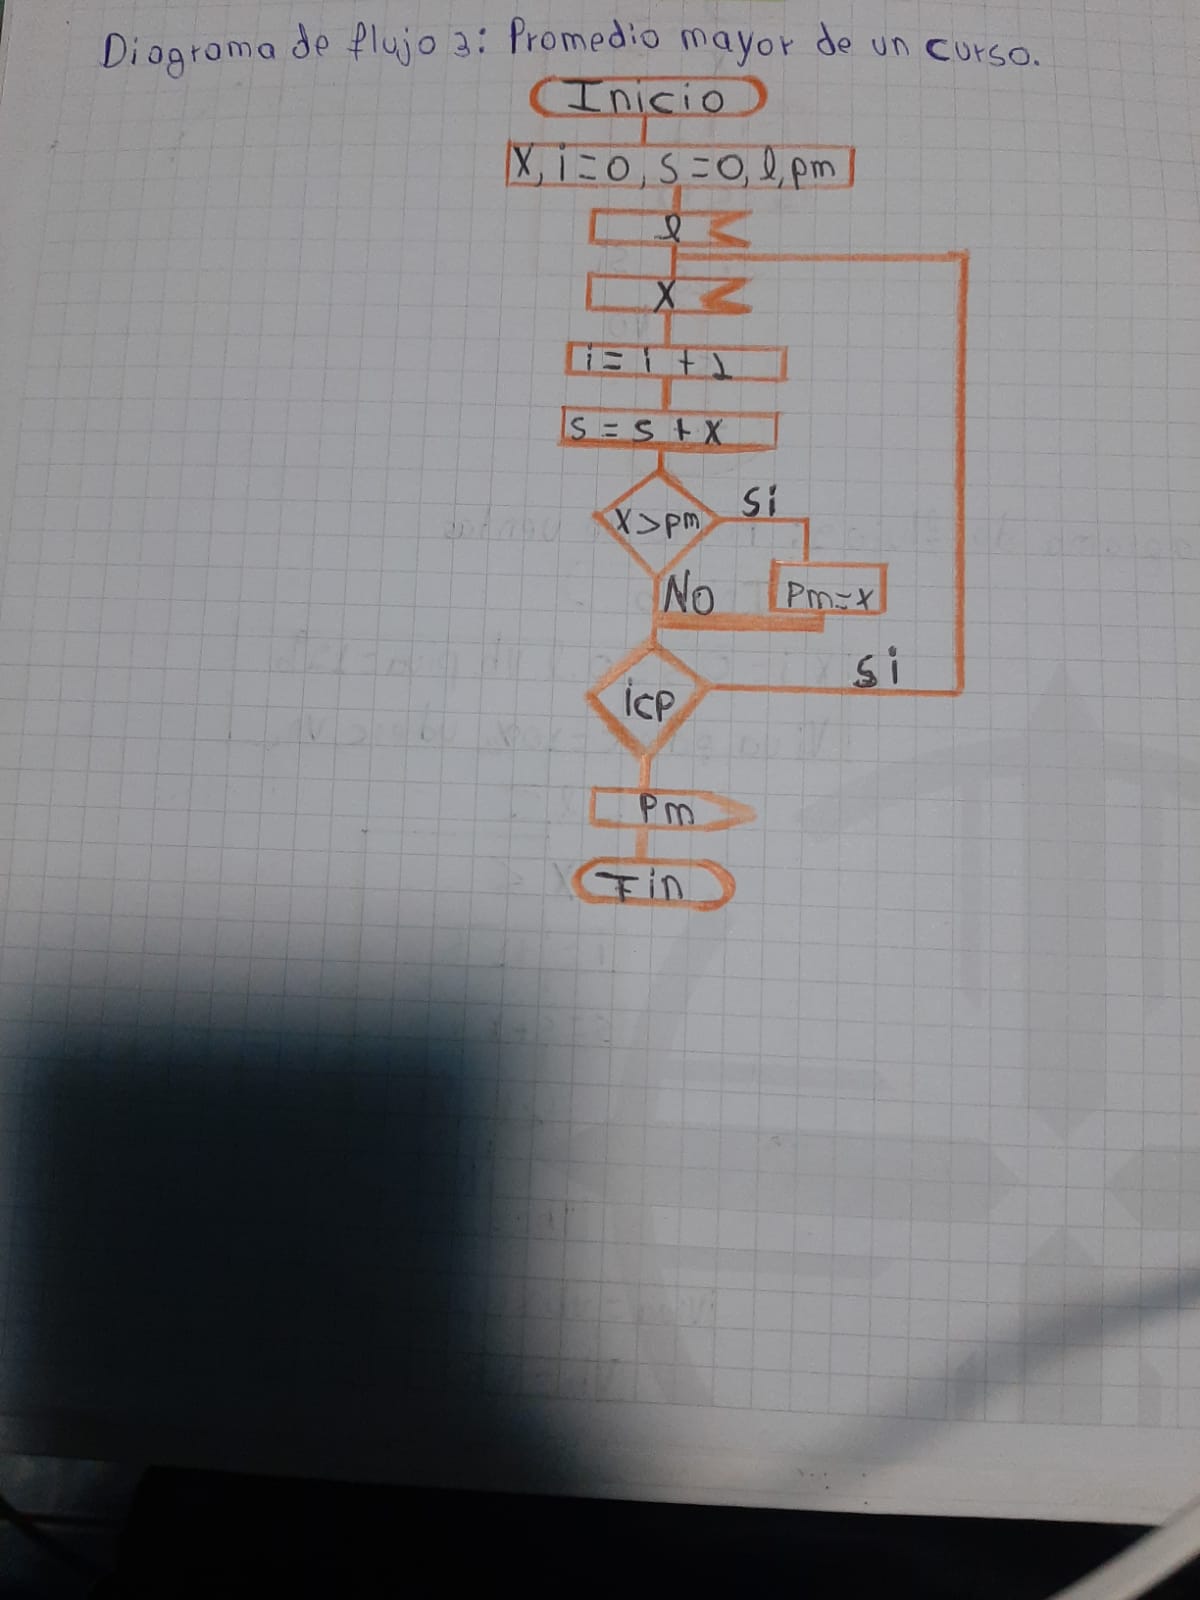 Diagrama de flujo 3: Promedio mayor de un curso.
Inicio
X, i=0, s=0, l, pm
l
X
i = i + 1
s = s + x
x>pm
Si
No
Pm=x
i<p
si
Pm
Fin